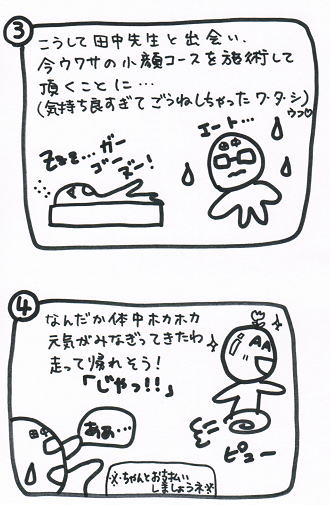 ③
こうして田中先生と出会い、
今ウワサの小顔コースを施術して
頂くことに…
(気持ち良すぎてごうねしちゃったワ・タ・シ)
ウフ♡
Zzzz…ガー
ゴー
ズー!
エート…
田中
④
なんだか体中ホカホカ
元気がみなぎってきたわ
走って帰れそう!
「じゃっ!!」
田中
ああ…
ピュー
※ちゃんとお支払い
しましょうネ※